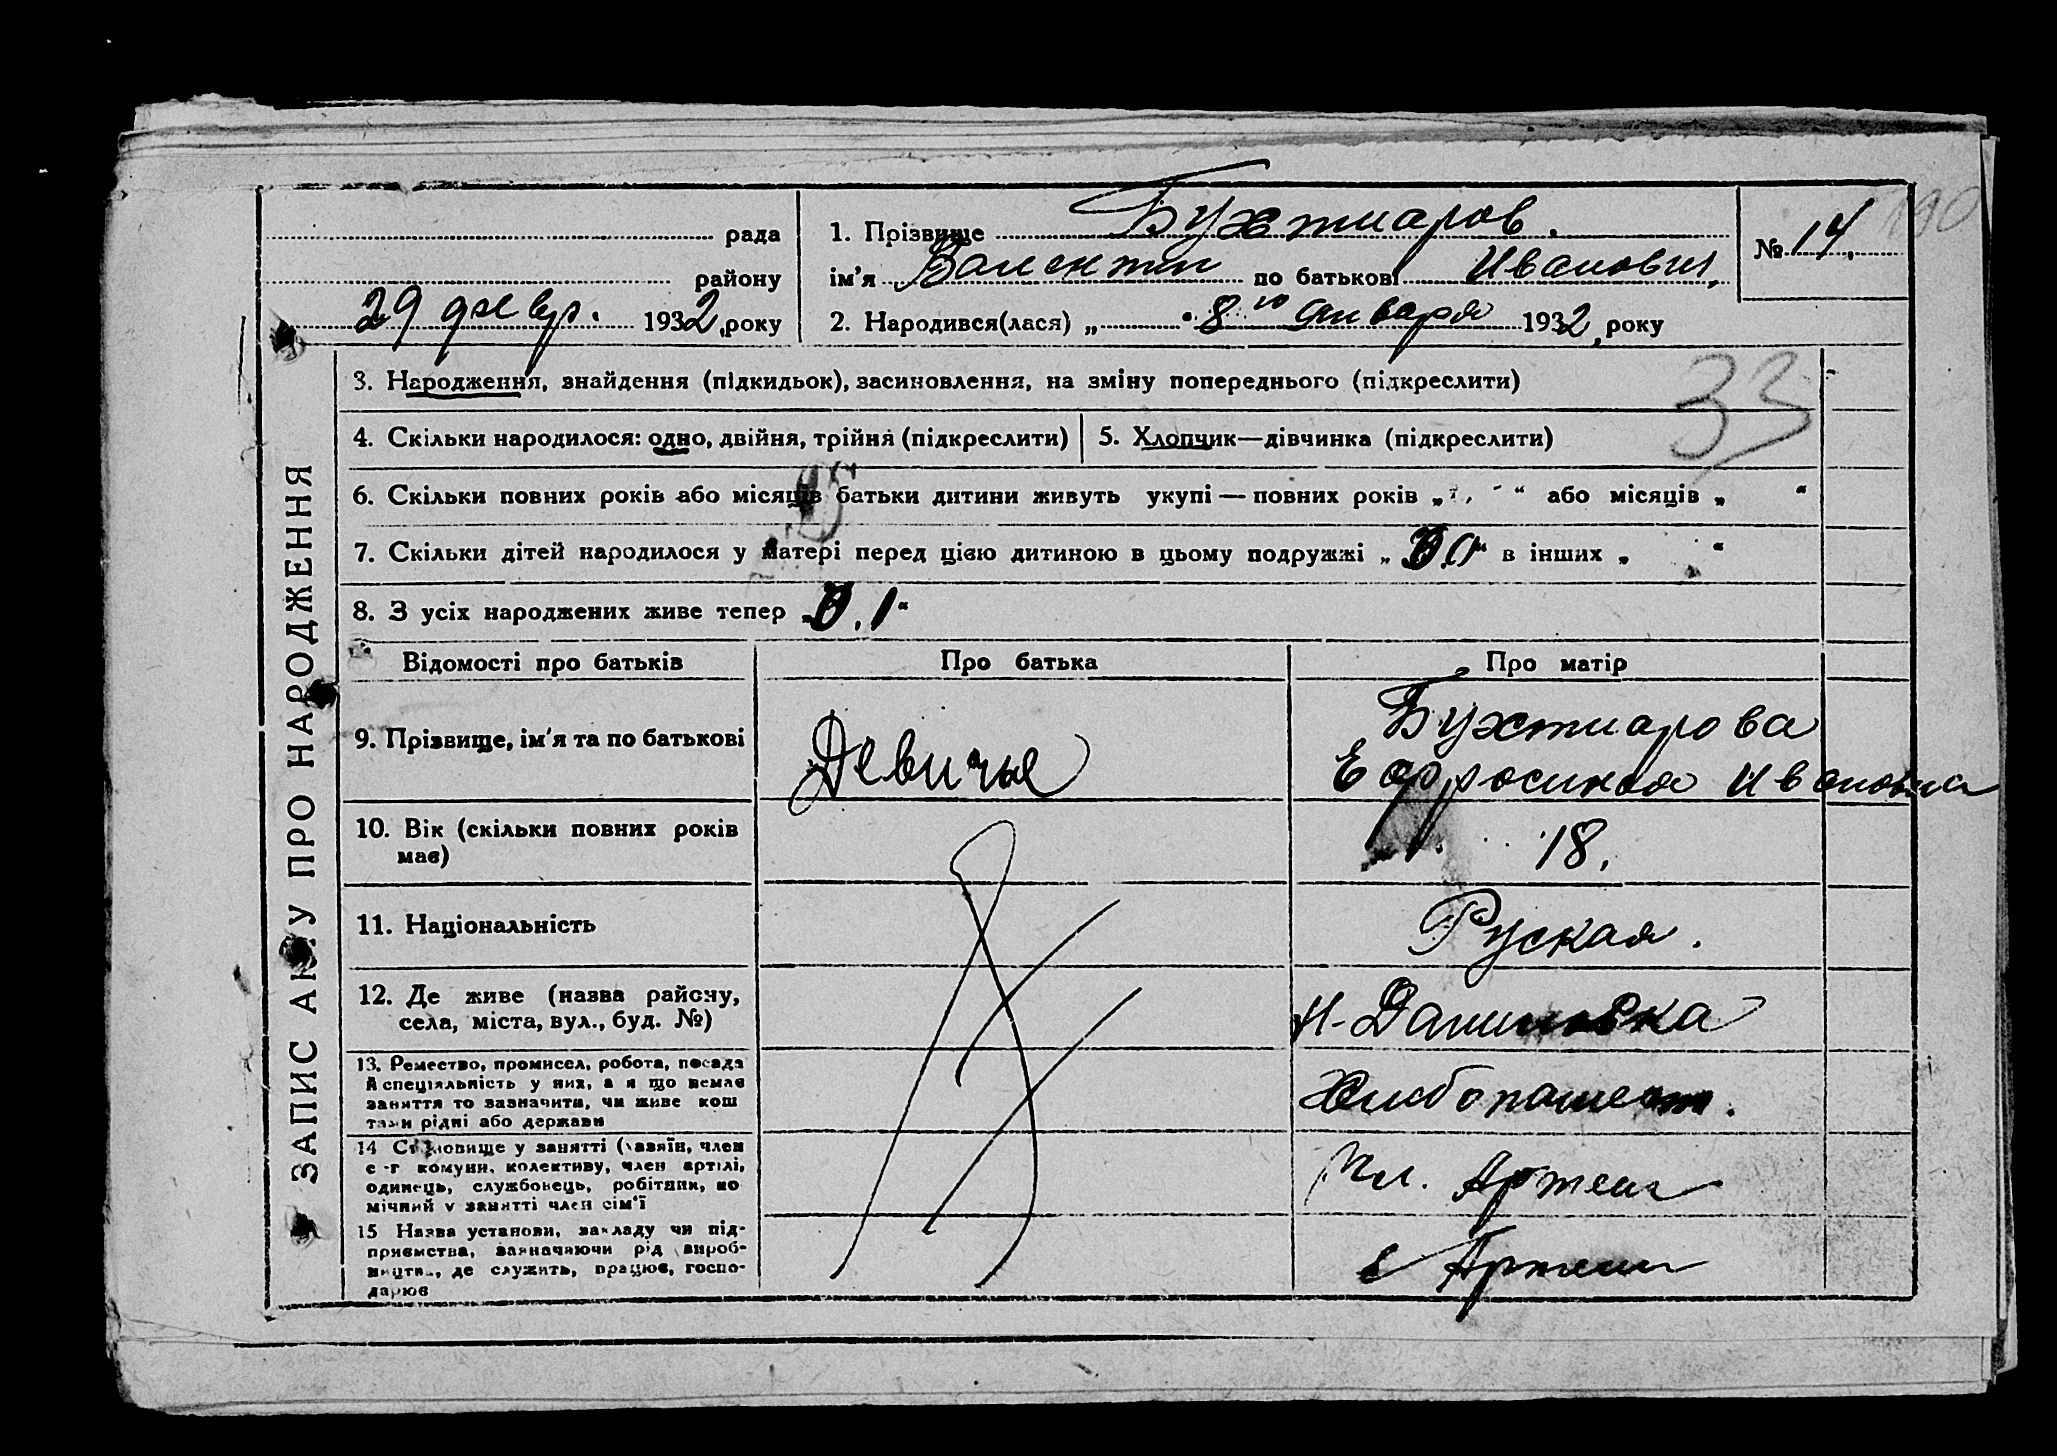 рада
району
29 февр. 1932 року
1. Прізвище Бухтиаров.
ім'я Валентин по батькові Иванович,
2. Народився(лася) „ “ 8го Января 1932 року
№ 14.
190
ЗАПИС АКТУ ПРО НАРОДЖЕННЯ
3. Народження, знайдення (підкидьок), засиновлення, на зміну попереднього (підкреслити)
33
4. Скільки народилося: одно, двійня, трійня (підкреслити)
5. Хлопчик—дівчинка (підкреслити)
6. Скільки повних років або місяців батьки дитини живуть укупі — повних років „ “ або місяців „ “
7. Скільки дітей народилося у матері перед цією дитиною в цьому подружжі „ “ в інших „ “
8. З усіх народжених живе тепер „ 1“
Відомості про батьків
Про батька
Про матір
9. Прізвище, ім'я та по батькові
Девичье
Бухтиарова
Ефросиния Ивановна
10. Вік (скільки повних років
має)
18.
11. Національність
Руская.
12. Де живе (назва району,
села, міста, вул., буд. №)
Н-Даниловка
13. Ремество, промисел, робота, посада
й спеціяльність у них, а я що немає
заняття то зазначити, чи живе кош
тами рідні або держави
Хлибопашест.
14 Становище у занятті (хазяїн, член
с-г комуни, колективу, член артілі,
одинець, службовець, робітник, по
мічний у занятті член сім'ї
Чл. Артели
15 Назва установи, закладу чи під-
приємства, зазначаючи рід вироб-
ництва, де служить, працює, госпо-
дарює
в Артели